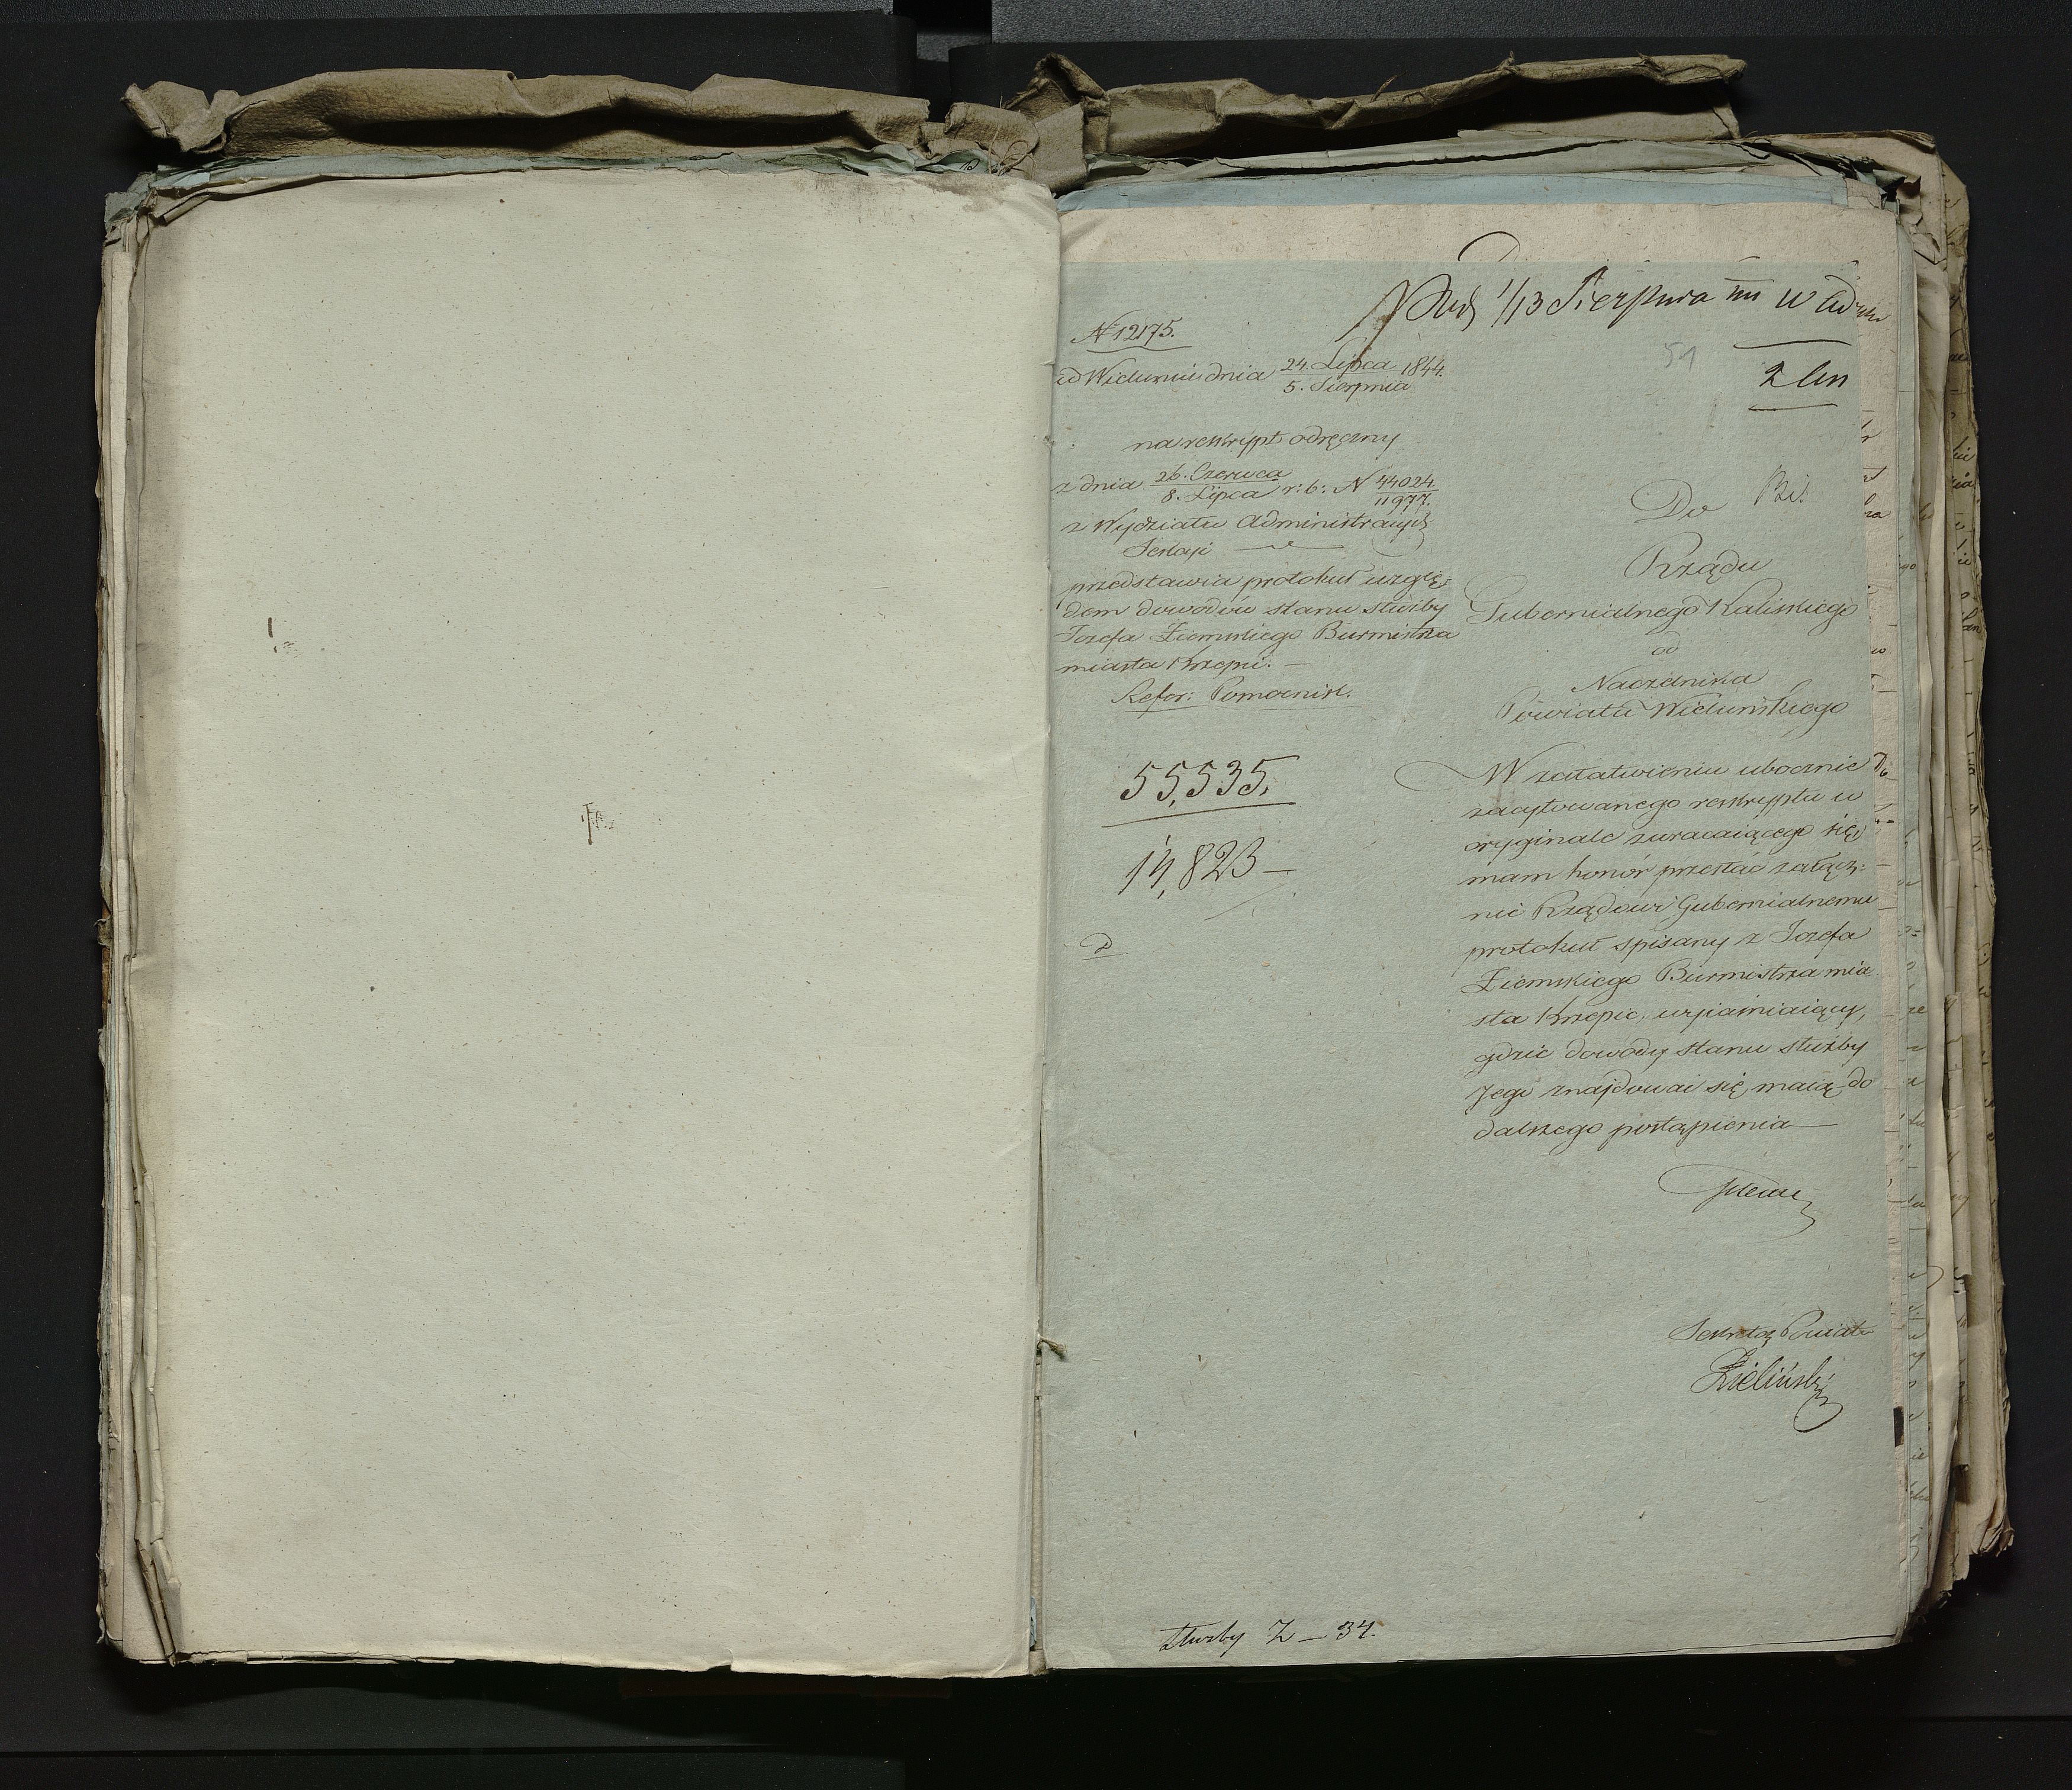 1/13 Sierpnia
N 12175.
w Wieluniu dnia 24. Lipca 1844.
5. Sierpnia
51
na reskrypt odręczny
z dnia 26. Czerwca
8. Lipca r: b: N 44024.
11977.
z Wydziału Administracyj
Sekcyi
przedstawia protokuł wzglę:
dem dowodów stanu służby
Jozefa Ziemskiego Burmistrza
miasta Krzepic. —
Refer: Pomocnik.
55,535.
14,823 —
Do
Rządu
Gubernialnego Kaliskiego
od
Naczelnika
Powiatu Wieluńskiego
W załatwieniu ubocznie
zacytowanego reskryptu w
oryginale zwracaiącego się
mam honór przesłać załącz:
nie Rządowi Gubernialnemu
protokuł spisany z Jozefa
Ziemskiego Burmistrza mia
sta Krzepic, wyiaśniaiący,
gdzie dowody stanu służby
Jego znajdować się maią do
dalszego postąpienia —
Sekretarz Powiatu
Zieliński
służby Z — 34.